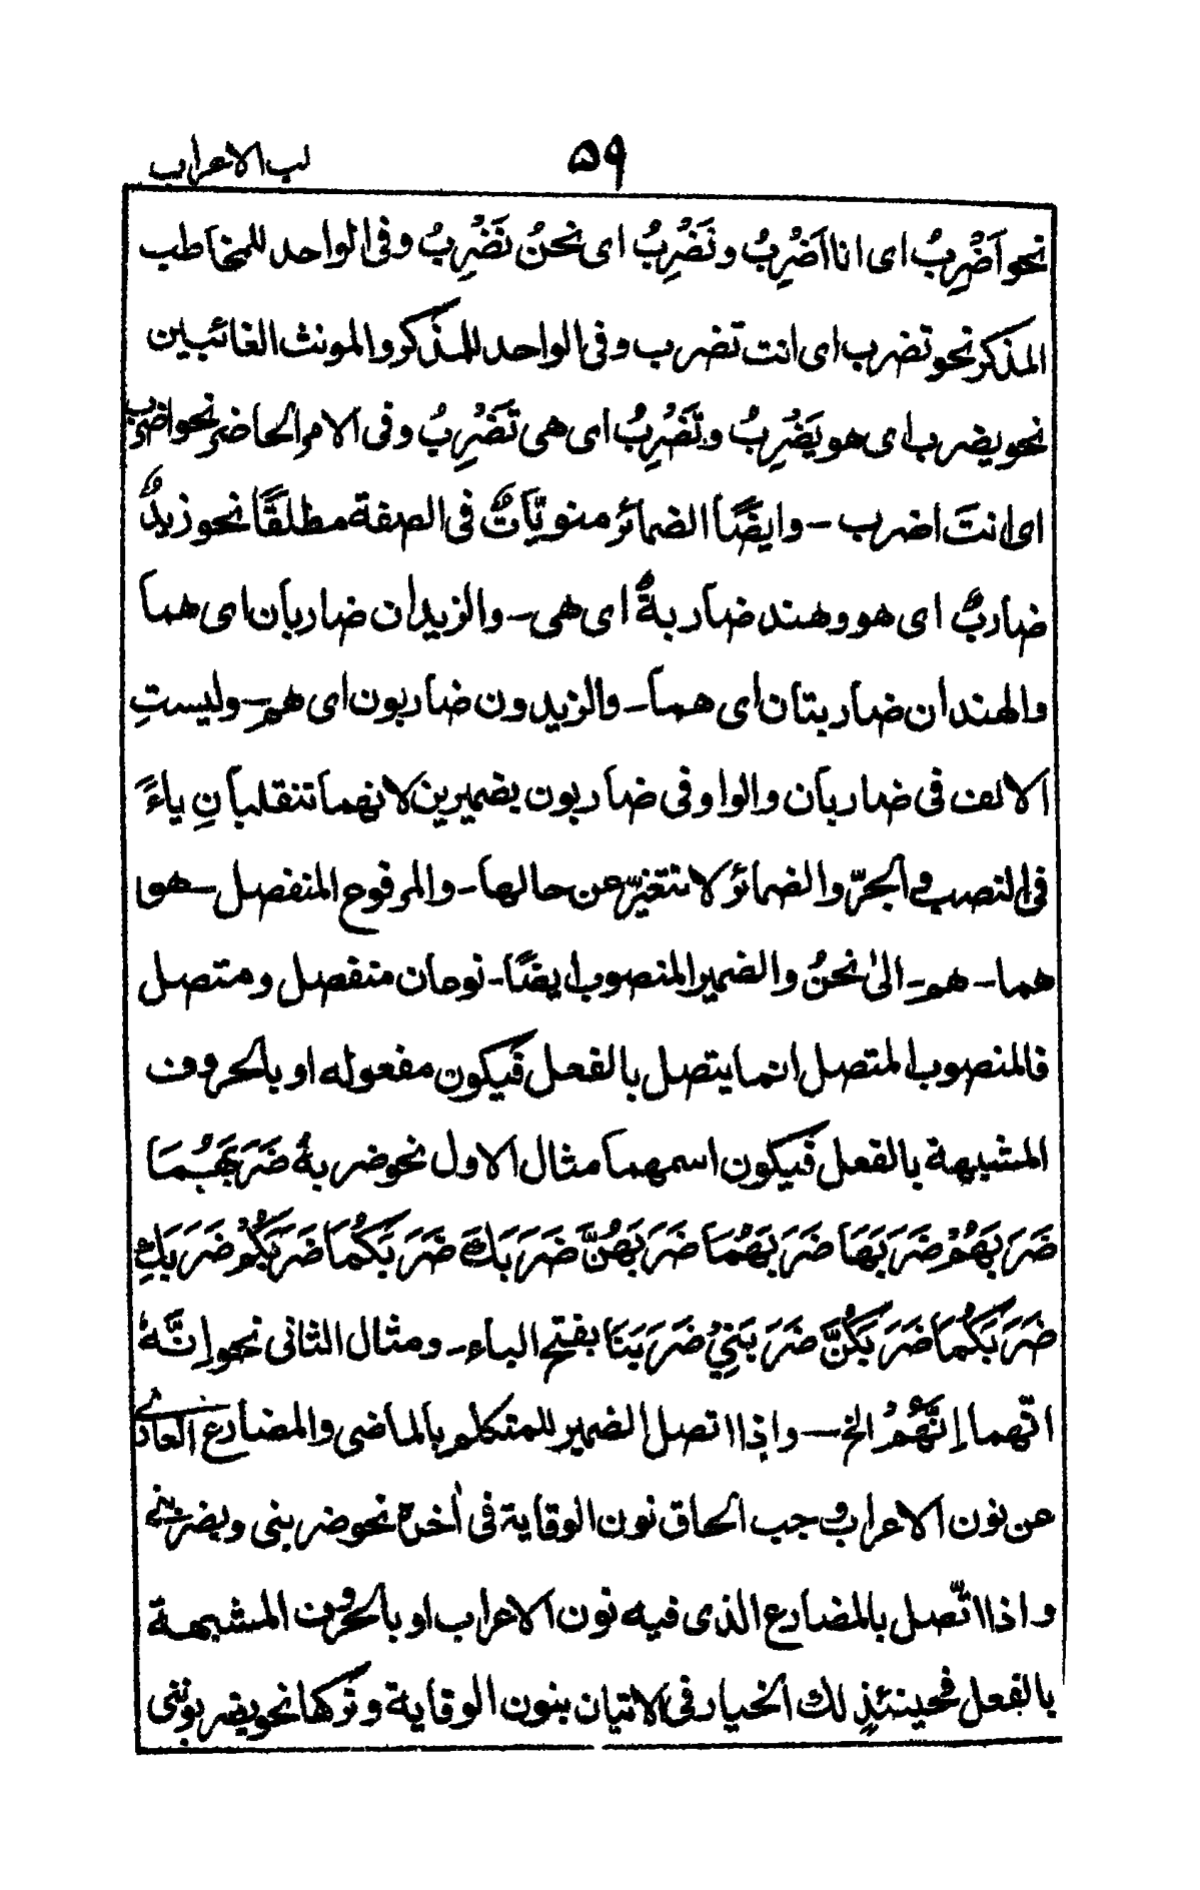 لب الاعراب ۵۹
نحو اَضْرِبُ ای انا اَضْرِبُ ونَضْرِبُ ای نحنُ نَضْرِبُ وفی الواحد للمخاطب
المذکر نحو تضرب ای انت تضرب وفی الواحد للمذکر والمونث الغائبین
نحو یضرب ای هو یَضْرِبُ وتَضْرِبُ ای هی تَضْرِبُ وفی الامر الحاضر نحو اضرب
ای انتَ اضرب - وایضًا الضمائر منویّاتٌ فی الصفة مطلقًا نحو زیدٌ
ضاربٌ ای هو وهند ضاربةٌ ای هی - والزیدان ضاربان ای هما
والهندان ضاربتان ای هما - والزیدون ضاربون ای هم - ولیستِ
الالف فی ضاربان والواو فی ضاربون بضمیرین لانهما تنقلبانِ یاءً
فی النصب والجرّ والضمائر لا تتغیّر عن حالها - والمرفوع المنفصل - هوا
هما - هم - الیٰ نحنُ والضمیر المنصوب ایضًا - نوعان منفصل ومتصل
فالمنصوب المتصل انما یتصل بالفعل فیکون مفعوله او بالحروف
المشبهة بالفعل فیکون اسمهما مثال الاول نحو ضربهُ ضَرَبَهُمَا
ضَرَبَهُمْ ضَرَبَهَا ضَرَبَهُمَا ضَرَبَهُنَّ ضَرَبَكَ ضَرَبَكُمَا ضَرَبَكُمْ ضَرَبَكِ
ضَرَبَكُمَا ضَرَبَكُنَّ ضَرَبَنِیْ ضَرَبَنَا بفتح الباء - ومثال الثانی نحو اِنَّهٗ
انّهما اِنَّهُمْ الخ - واذا اتصل الضمیر للمتکلم بالماضی والمضارع العاری
عن نون الاعراب وجب الحاق نون الوقایة فی اٰخره نحو ضربنی ویضربنی
واذا اتّصل بالمضارع الذی فیه نون الاعراب او بالحروف المشبهة
بالفعل فحینئذٍ لك الخیار فی الاتیان بنون الوقایة وترکها نحو یضربوننی